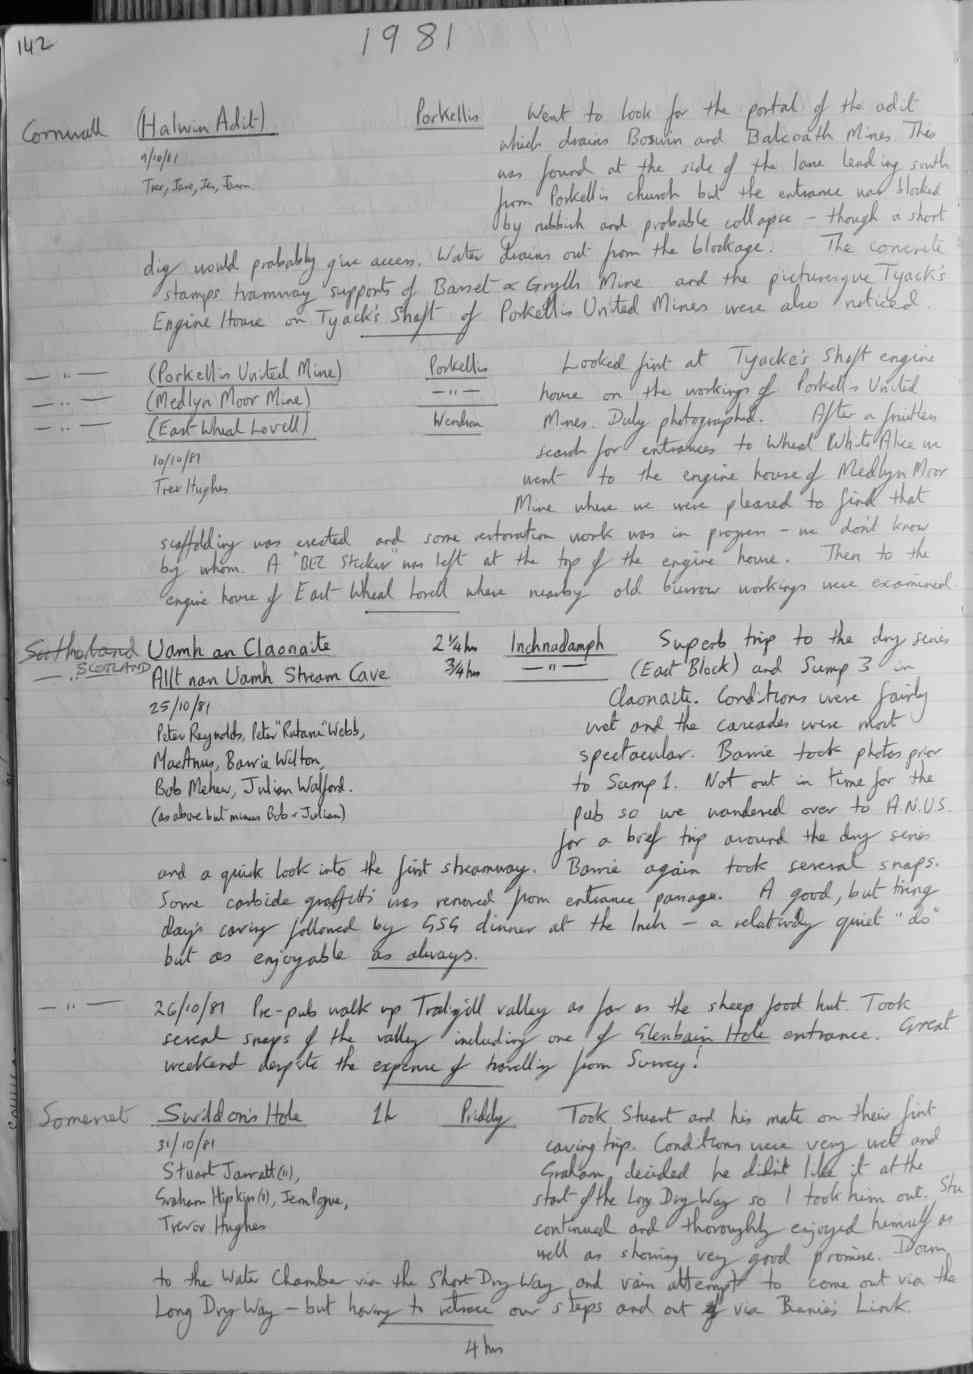 142
1981
Cornwall (Halwin Adit) Porkellis Went to look for the portal of the adit
9/10/81 which drains Boswin and Balcoath Mines. This
Trev, Jane, Jen, was found at the side of the lane leading south
from Porkellis church but the entrance was blocked
by rubbish and probable collapse - though a short
dig would probably give access. Water drains out from the blockage. The concrete
stamps tramway supports of Basset & Grylls Mine and the picturesque Tyack's
Engine House on Tyack's Shaft of Porkellis United Mines were also noticed.
— " — (Porkellis United Mine) Porkellis Looked first at Tyacke's Shaft engine
— " — (Medlyn Moor Mine) — " — house on the workings of Porkellis United
— " — (East Wheal Lovell) Wendron Mines. Duly photographed. After a fruitless
10/10/81 search for entrances to Wheal White Alice we
Trev Hughes went to the engine house of Medlyn Moor
Mine where we were pleased to find that
scaffolding was erected and some restoration work was in progress - we don't know
by whom. A "BEC Sticker" was left at the top of the engine house. Then to the
engine house of East Wheal Lovell where nearby old burrow workings were examined.
Sutherland Uamh an Claonaite 2 1/4 hrs Inchnadamph Superb trip to the dry series
— " — SCOTLAND Allt nan Uamh Stream Cave 3/4 hrs — " — (East Block) and Sump 3 in
25/10/81 Claonaite. Conditions were fairly
Peter Reynolds, Peter "Ratarse" Webb, wet and the cascades were most
MacAnus, Barrie Wilton, spectacular. Barrie took photos prior
Bob Mehew, Julian Walford. to Sump 1. Not out in time for the
(as above but minus Bob & Julian) pub so we wandered over to A.N.U.S.
for a brief trip around the dry series
and a quick look into the first streamway. Barrie again took several snaps.
Some carbide graffiti was removed from entrance passage. A good, but tiring
day's caving followed by GSG dinner at the Inch - a relatively quiet "do"
but as enjoyable as always.
— " — 26/10/81 Pre-pub walk up Traligill valley as far as the sheep food hut. Took
several snaps of the valley including one of Glenbain Hole entrance. Great
weekend despite the expense of travelling from Surrey!
Somerset Swildon's Hole 1h Priddy Took Stuart and his mate on their first
31/10/81 caving trip. Conditions were very wet and
Stuart Jarratt (11), Graham decided he didn't like it at the
Graham Hipkin (11), Jem Pogue, start of the Long Dry Way so I took him out. Stu
Trevor Hughes continued and thoroughly enjoyed himself as
well as showing very good promise. Down
to the Water Chamber via the Short Dry Way and vain attempt to come out via the
Long Dry Way - but having to retrace our steps and out via Barnes' Link.
4 hrs